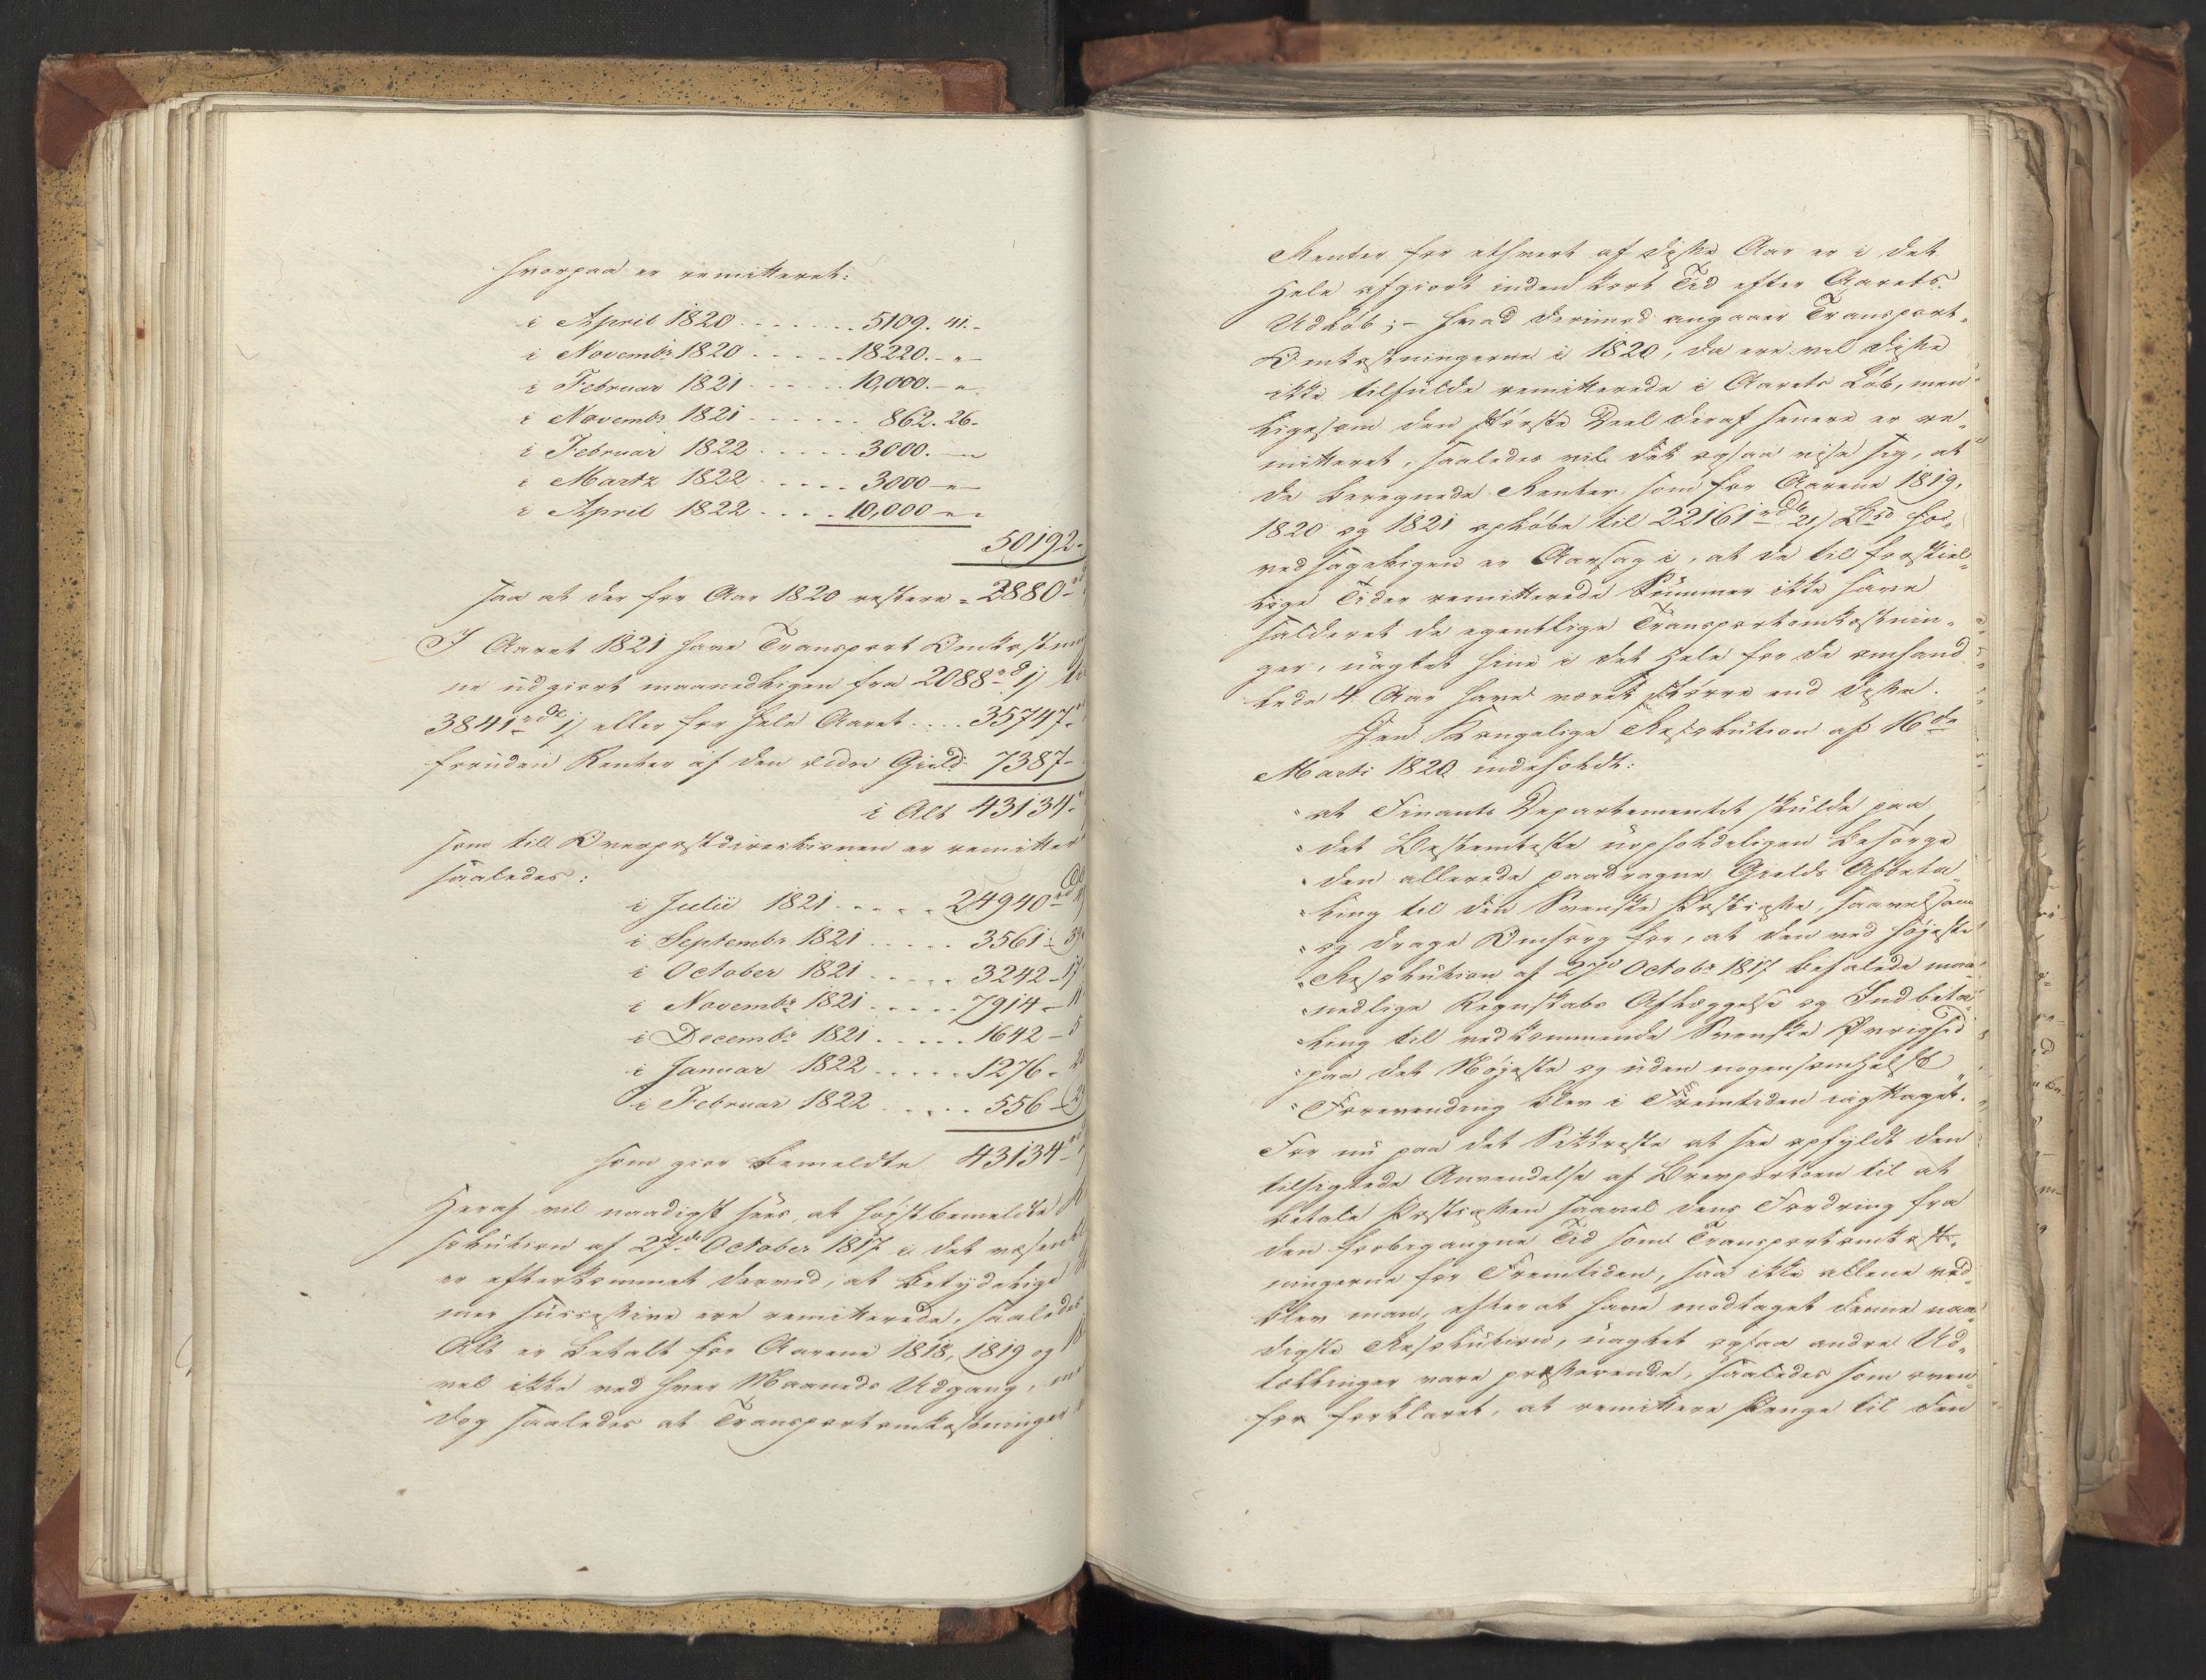 hvorpaa er remitteret:
i April 1820 . . . . . . . . 5109. 41.-
i Novembr 1820 . . . . . 18220. - „ -
i Februar 1821 . . . . . 10,000. - „
i Novembr 1821 . . . . . . 862. 26.
i Februar 1822 . . . . . 3000. - „
i Martz 1822 . . . . . 3000 - „ -
i April 1822 . . . . 10,000 - „ -
50192.
saa at der for Aar 1820 restere = 2880-
I Aaret 1821 have Transport Omkostnin
ne udgiort maanedligen fra 2088 rd 1
3841 rdr 1 eller for hele Aaret . . . . 35747.
foruden Renter af den ældre Gield 7387-
i Alt 43134-
som till Overpostdirectionen er remitter
saaledes:
i Julii 1821 . . . . . 24940
i Septembr 1821 . . . . . 3561 - 39
i October 1821 . . . . . 3242 - 17
i Novembr 1821 . . . . . 7914 - 11
i Decembr 1821 . . . . . 1642 - 5
i Januar 1822 . . . . . 1276 -
i Februar 1822 . . . . . 556 -
som giør bemeldte 43134 -
Heraf vil naadigst sees, at højstbemeldte
solution af 27de October 1817 i det væsentli
er efterkommet derved, at betydelige
mer successive ere remitterede, saaledes
Alt er betalt for Aarene 1818, 1819 og
vel ikke ved hver Maaneds Udgang,
dog saaledes at Transportomkostninger
Renter for ethvert af disse Aar er i det
Hele afgiort inden kort Tid efter Aarets
Udløb; - hvad derimod angaaer Transport-
Omkostningerne i 1820, da ere vel disse
ikke tilfulde remitterede i Aarets Løb, men
ligesom den største Deel deraf senere er re-
mitteret, saaledes vil det ogsaa vise sig, at
de beregnede Renter som for Aarene 1819,
1820 og 1821 opløbe til 22161 rdr 21 Bco ho-
vedsageligen er Aarsag i, at de til forskiel-
lige Tider remitterede Summer ikke have
salderet de egentlige Transportomkostnin-
ger, uagtet hine i det Hele for de omhand-
lede 4 Aar have været større end disse.
Den Kongelige Resolution af 16de
Marts 1820 indeholdt:
„at Finants Departementet skulde paa
„det Bestemteste uopholdeligen besørge
„den allerede paadragne Gields Afbeta-
„ling til den Svenske Postcasse, saavelsom
„og drage Omsorg for, at den ved højeste
„Resolution af 27de Octobr 1817 befalede maa-
„nedlige Regnskabs Aflæggelse og Indbeta-
„ling til vedkommende Svenske Øvrighed
„paa det Nøjeste og uden nogensomhelst
„Forevending blev i Fremtiden iagttaget.
For nu paa det Sikkreste at see opfyldt den
tilsigtede Anvendelse af Brevportoen til at
betale Postcassen saavel dens Fordring fra
den forbigangne Tid som Transportomkost-
ningerne for Fremtiden, saa ikke allene ved-
blev man, efter at have modtaget denne naa-
digste Resolution, uagtet ogsaa andre Ud-
tællinger vare presserende, saaledes som oven-
for forklaret, at remittere Penge til den